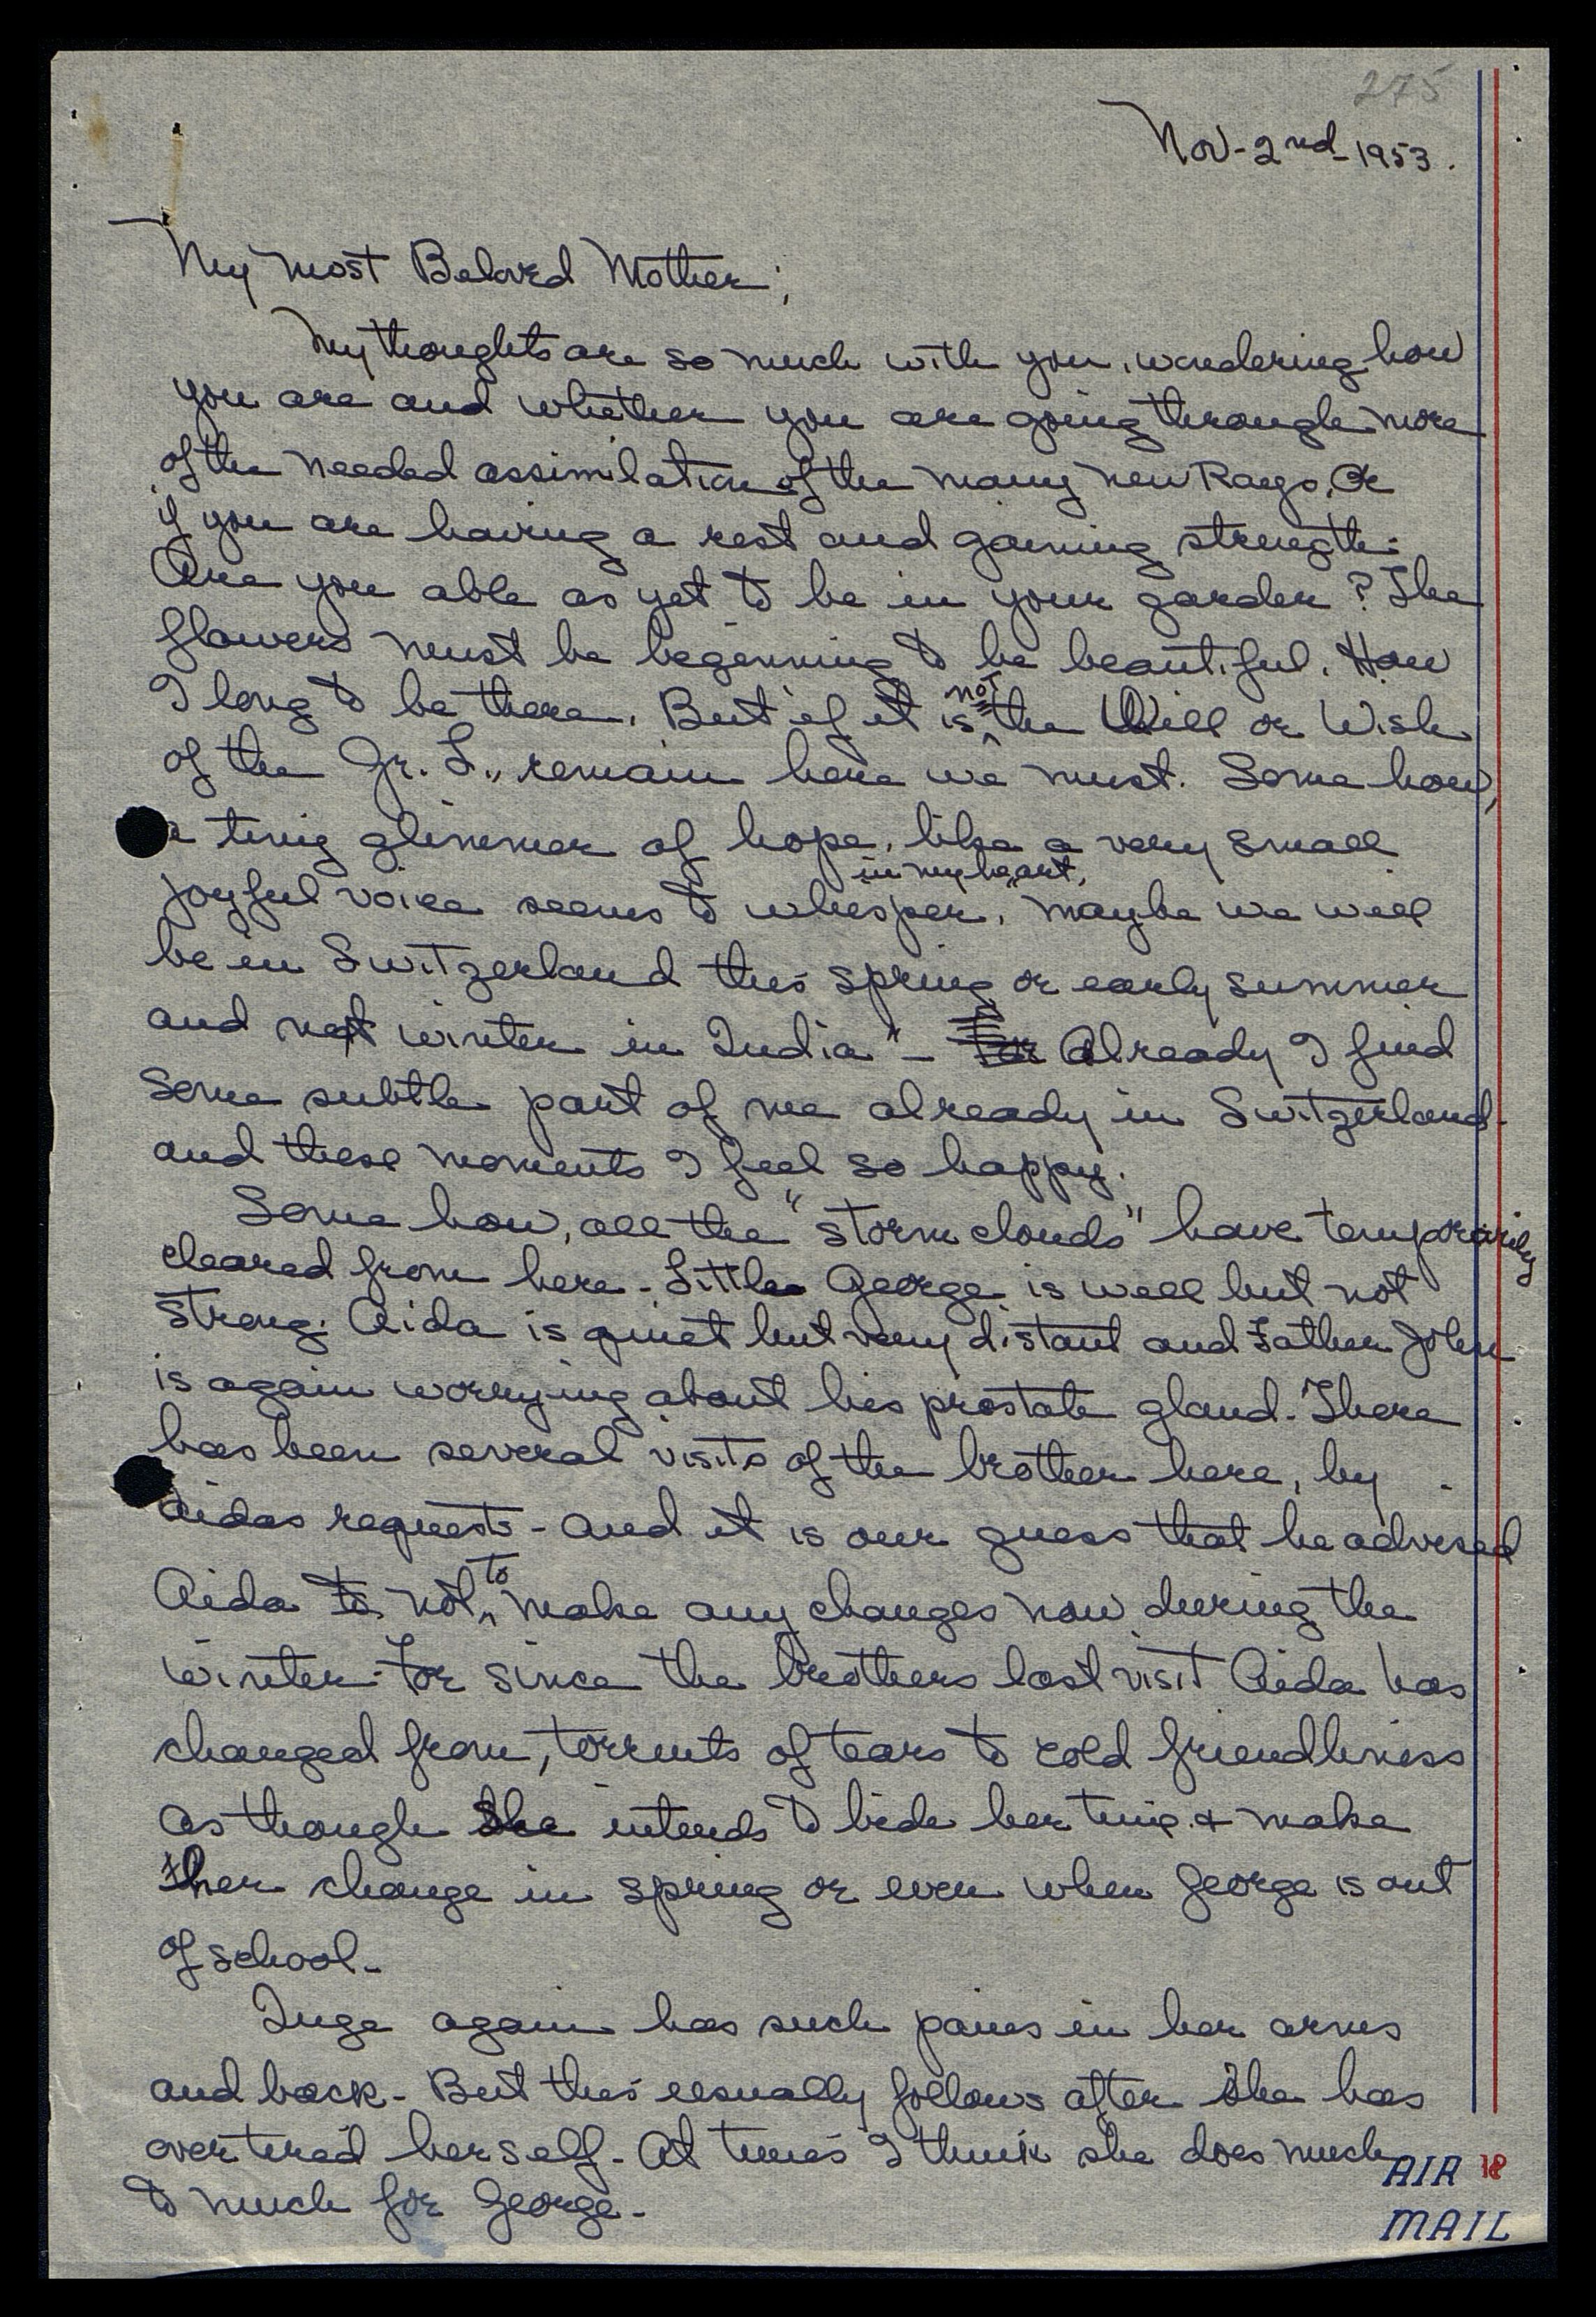 275
Nov-2nd-1953.
My most Beloved Mother;
My thoughts are so much with you, wondering how
you are and whether you are going through more
of the needed assimilation of the many new Rays, Or
if you are having a rest and gaining strength.
Are you able as yet to be in your garden? The
flowers must be beginning to be beautiful. How
I long to be there. But if it is not the Will or Wish
of the Gr. L., remain here we must. Some how,
a tiny glimmer of hope, like a very small
joyful voice seems to whisper, in my heart, "maybe we will
be in Switzerland this spring or early summer
and next winter in India" - For Already I find
some subtle part of me already in Switzerland-
and these moments I feel so happy.
Some how, all the "storm clouds" have temporarily
cleared from here - Little George is well but not
strong. Aida is quiet but very distant and Father John
is again worrying about his prostate gland. There
has been several visits of the brother here, by
Aidas requests - and it is our guess that he advised
Aida to not to make any changes now during the
winter. For since the brothers last visit Aida has
changed from, torrents of tears to cold friendliness
as though she intends to bide her time & make
her change in spring or even when George is out
of school -
Inge again has such pains in her arms
and back - But this usually follows after she has
over tired herself - At times I think she does much
to much for George -
AIR 18
MAIL